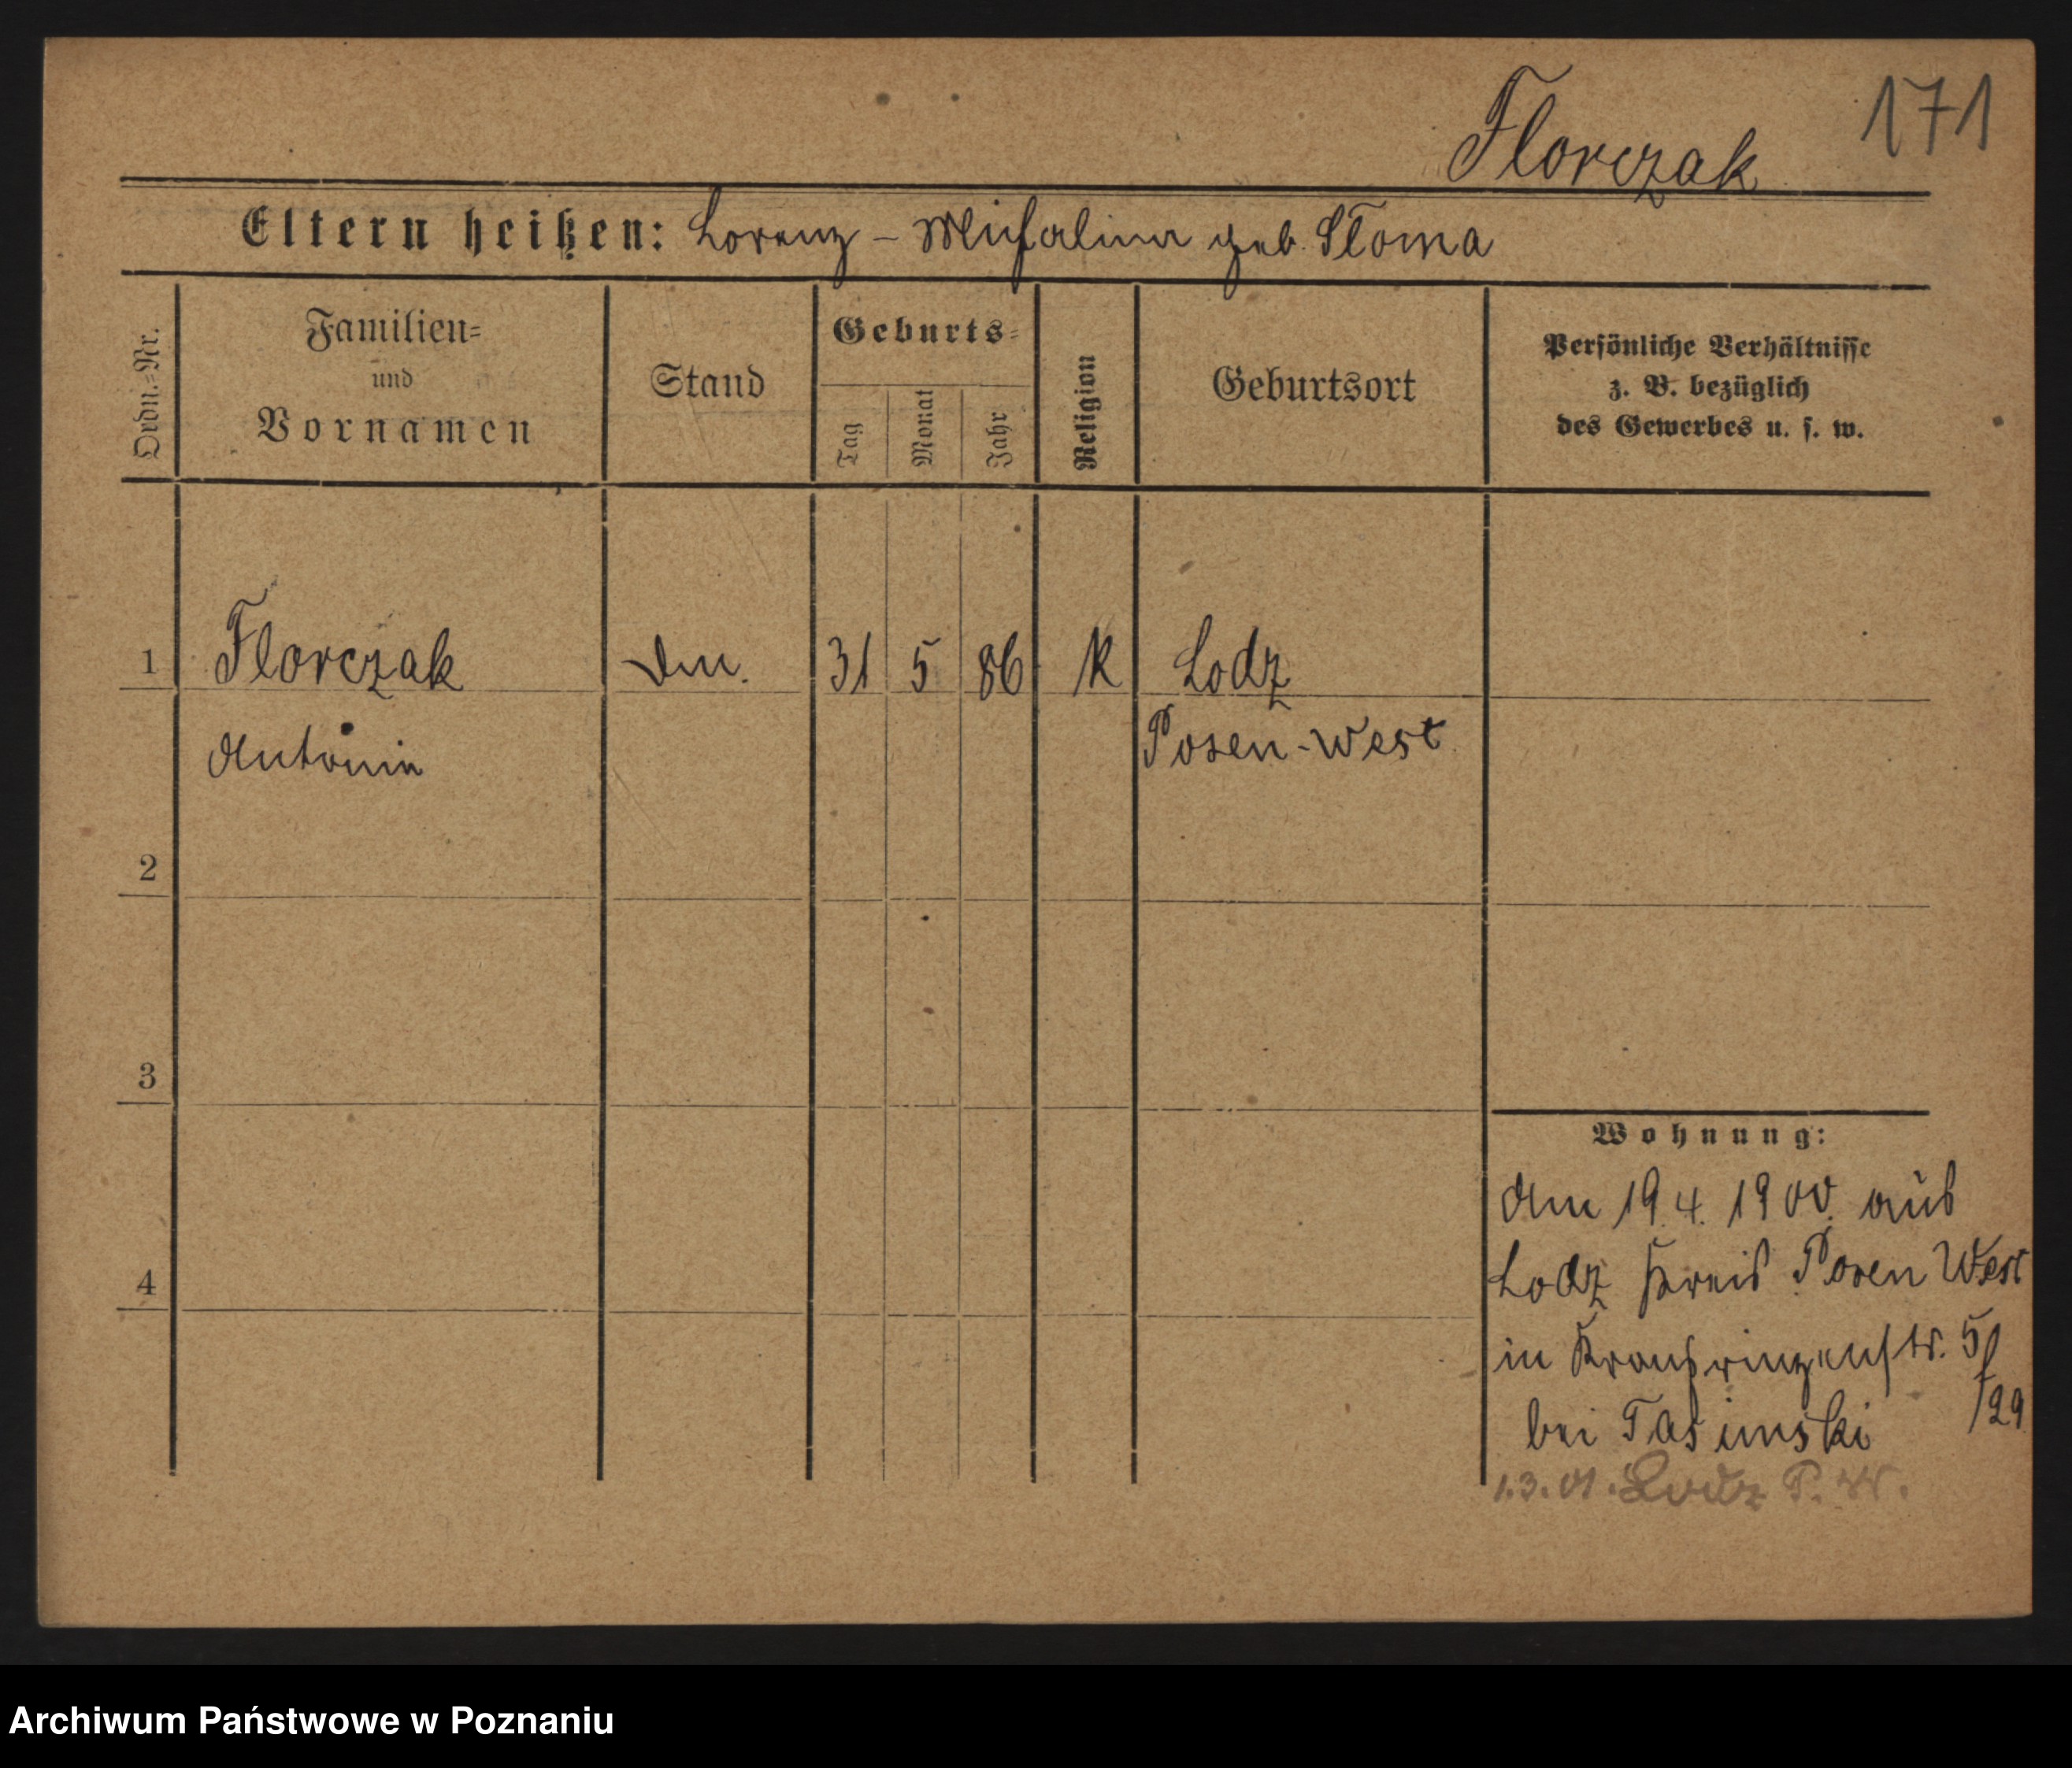 171
Florczak
Eltern heißen: Lorenz - Michalina geb. Stoma
Ordn.=Nr.
Familien=
und
Vornamen
Stand
Geburts=
Tag
Monat
Jahr
Religion
Geburtsort
Persönliche Verhältnisse
z. B. bezüglich
des Gewerbes u. s. w.
1 Florczak 31 5 86 K Lodz
Antonie Posen-West
2
3
4
Wohnung:
Am 19.4.1900. aus
Lodz Kreis Posen West
in Kronprinzenstr. 5/
/29
bei Tasimski
1.3.01. Lodz P. W.
Archiwum Państwowe w Poznaniu